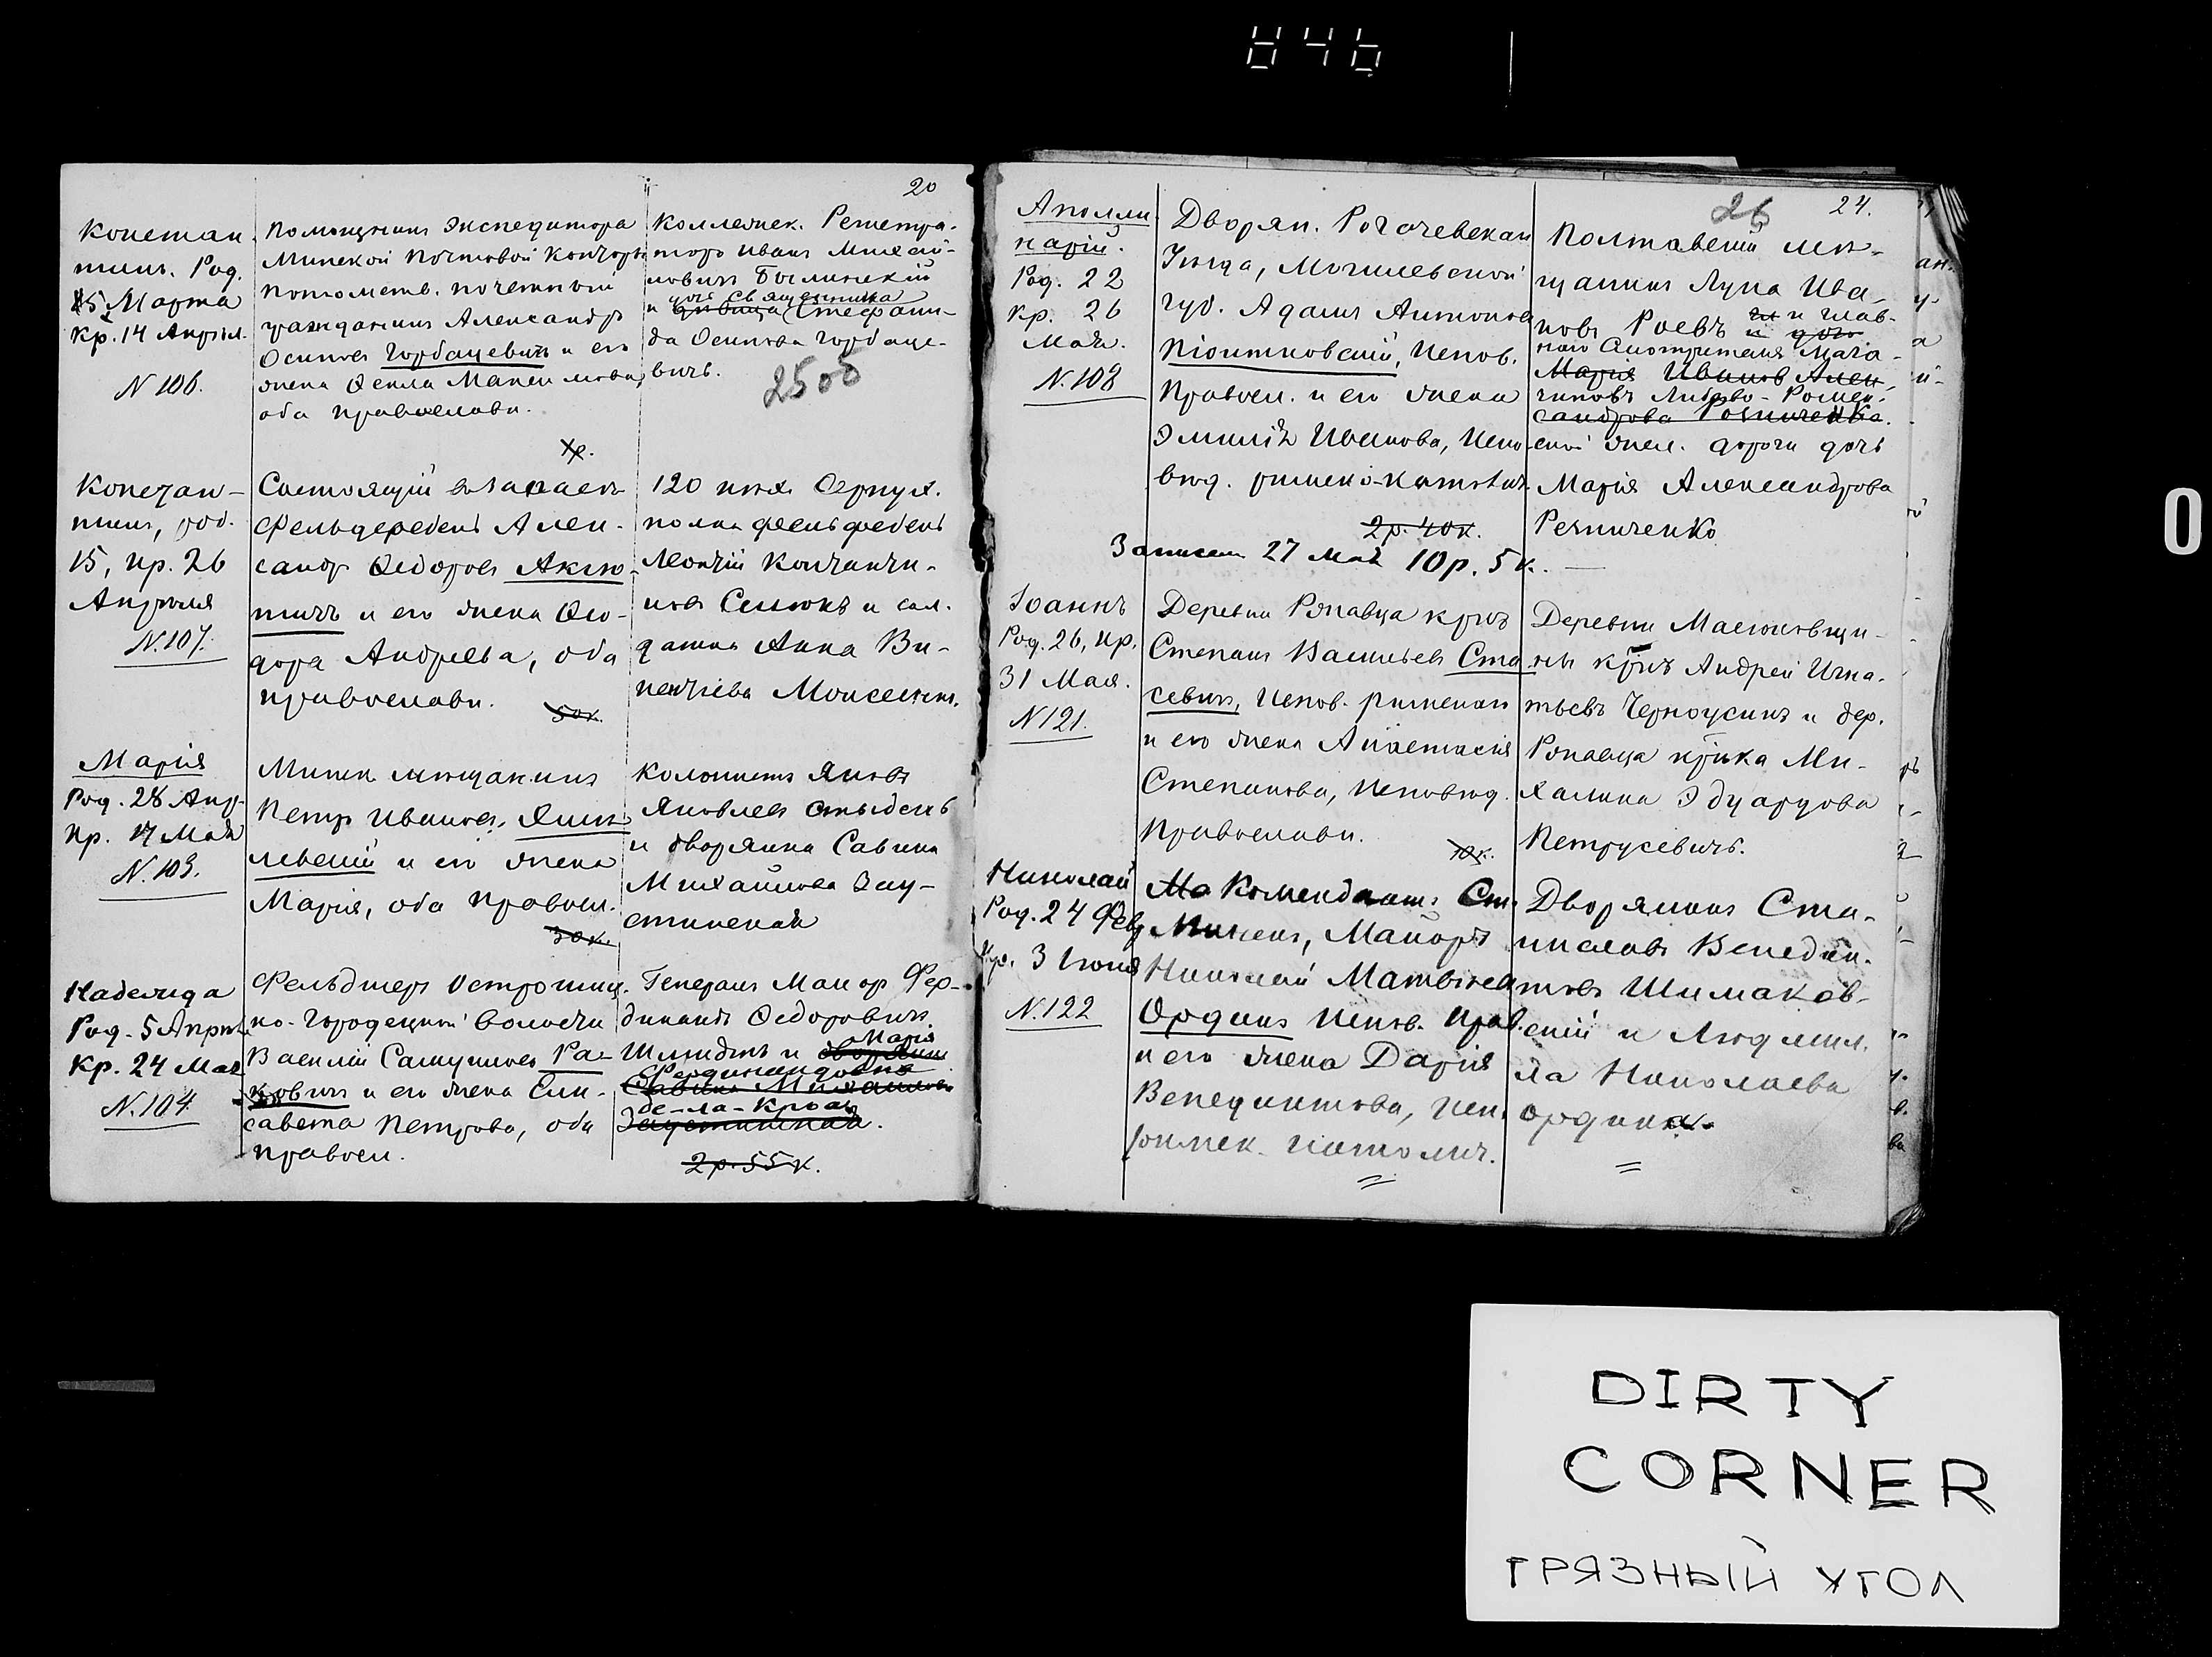 20
Констан-
тинъ. Род.
15 Марта
Кр. 14 Апрѣл.
N 106.
Помощникъ Экспедитора
Минской Почтовой Конторы
потомств. почетный
гражданинъ Александр
Осиповъ Горбацевичъ и его
жена Ѳекла Максимова,
оба православн.
Коллежск. Регистра-
торъ Иванъ Михай-
ловичъ
дочь священника
и девица Стефани-
да Осипова Горбаце-
вичъ.
2500
Констан-
тинъ, род.
15, кр. 26
Апрѣля
N.107.
Состоящій въ запасѣ
Фельдфебель Алек-
сандръ Ѳедоровъ Аксю-
тичъ и его жена Ѳео-
дора Андреева, оба
православн.
50к.
120 пѣх. Серпух.
полка фельдфебель
Леонтій Константи-
новъ Семокъ и сол-
датка Анна Ви-
кентіева Моисеенкъ.
Марія
Род. 28 Апр.
кр. 17 Мая
N.103.
Минск. мѣщанинъ
Петръ Ивановъ
и его жена
Марія, оба правосл.
30к.
Колонистъ Яковъ
Яковлевъ
и дворянка Савина
Михайлова Зау-
стинская
Надежда
Род. 5 Апрѣл.
Кр. 24 Мая
N.104.
Фельдшеръ Острошиц-
ко-Городецкой волости
Василій Самуиловъ Ра-
ковичъ и его жена Ели-
савета Петрова, оба
правосл.
Генералъ Маіоръ Фер-
динандъ Ѳедоровичъ
Марія
Шмидтъ и дворянка
Фердинандовна
Савина Михайлова
де-ла-Кроа
Заустинская.
2р. 55к.
26 24.
Аполли-
нарій.
Род. 22
кр. 26
Мая.
N.108
Дворян. Рогачевскаго
Уѣзда, Могилевской
губ. Адамъ Антоновъ
Піотковскій, испов.
Правосл. и его жена
Эмилія Иванова, испо-
вѣд. римско-католич.
2р. 40к.
Полтавскій мѣ-
щанинъ Лука Ива-
новъ Роевъ и глав-
и дочь
наго Смотрителя Мага-
Марія Иванов Алек-
зиновъ Либаво-Ромен-
сандрова Речниченко.
ской жел. дороги дочь
Марія Александрова
Речниченко
Записан 27 Мая 10р. 5к.
Іоаннъ
Род. 26, кр.
31 Мая.
N 121.
Деревни Рѣпавца крнъ
Степанъ Васильевъ Ста-
севичъ, испов. римскаго
и его жена Анастасія
Степанова, исповѣд.
Православн.
10к.
Деревни Масюковщи-
ны крнъ Андрей Игна-
тьевъ Черноусикъ и дер.
Рѣпавца крнка Ми-
халина Эдуардова
Петрусевичъ.
Николай
Род. 24 Фев.
Кр. 3 Іюня
N.122
Ма Комендантъ Ст.
Минскъ, Маіоръ
Николай Матвѣевъ
Ординъ испов. прав.
и его жена Дарія
Венедиктова, исп.
римск. католич.
Дворянинъ Ста-
ниславъ Венедик-
товъ Шимаков-
скій и Людмил-
ла Николаева
Ордина.
DIRTY
CORNER
ГРЯЗНЫЙ УГОЛ